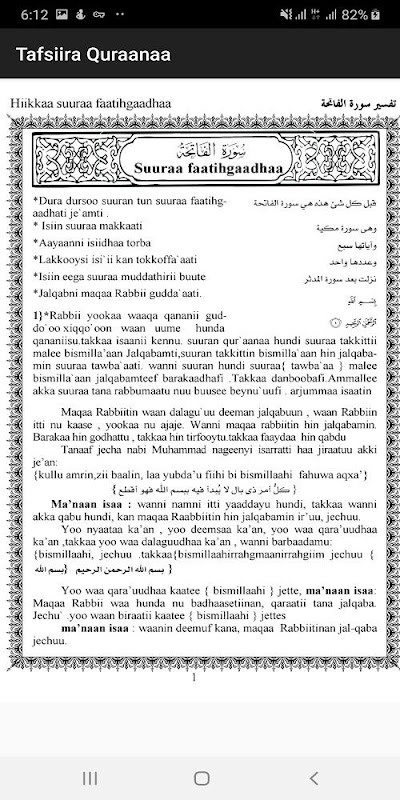 6:12
82%
Tafsiira Quraanaa
Hiikkaa suuraa faatihgaadhaa
تفسير سورة الفاتحة
سُورَةُ الْفَاتِحَةِ
Suuraa faatihgaadhaa
*Dura dursoo suuran tun suuraa faatihg-
aadhati je`amti .
قبل كل شئ هذه هي سورة الفاتحة
* Isiin suuraa makkaati
وهى سورة مكية
*Aayaanni isiidhaa torba
وآياتها سبع
*Lakkooysi isi`ii kan tokkoffa`aati
وعددها واحد
*Isiin eega suuraa muddathirii buute
نزلت بعد سورة المدثر
*Jalqabni maqaa Rabbii gudda`aati.
بِسْمِ اللهِ
الرَّحْمَٰنِ الرَّحِيمِ
1}*Rabbii yookaa waaqa qananii gud-
do`oo xiqqo`oon waan uume hunda
qananiisu.takkaa isaanii kennu. suuran qur`aanaa hundi suuraa takkittii
malee bismilla'aan Jalqabamti,suuran takkittin bismilla`aan hin jalqaba-
min suuraa tawba`aati. wanni suuran hundi suuraa{ tawba`aa } malee
bismilla`aan jalqabamteef barakaadhafi .Takkaa danboobafi.Ammallee
akka suuraa tana rabbumaatu nuu buusee beynu`uufi . arjummaa isaatin
Maqaa Rabbiitin waan dalagu`uu deeman jalqabuun , waan Rabbiin
itti nu kaase , yookaa nu ajaje. Wanni maqaa rabbiitin hin jalqabamin.
Barakaa hin godhattu , takkaa hin tirfooytu.takkaa faaydaa hin qabdu
Tanaaf jecha nabi Muhammad nageenyi isarratti haa jiraatuu akki
je'an:
{kullu amrin,zii baalin, laa yubda'u fiihi bi bismillaahi fahuwa aqxa'}
{ كلُّ أمر ذى بال لا يُبدأ فيه ببسم الله فهو أقطع }
Ma'naan isaa : wanni namni itti yaaddayu hundi, takkaa wanni
akka qabu hundi, kan maqaa Raabbiitin hin jalqabamin ir'uu, jechuu.
Yoo nyaataa ka`an , yoo deemsaa ka`an, yoo waa qara`uudhaa
ka`an ,takkaa yoo waa dalaguudhaa ka`an , wanni barbaadamu:
{bismillaahi, jechuu .takkaa{bismillaahirrahgmaanirrahgiim jechuu {
{ بسم الله الرحمن الرحيم } {بسم الله
Yoo waa qara`uudhaa kaatee { bismillaahi } jette, ma'naan isaa:
Maqaa Rabbii waa hunda nu badhaasetiinan, qaraatii tana jalqaba.
Jechu` .yoo waan biraatii kaatee { bismillaahi } jettes
ma'naan isaa : waanin deemuf kana, maqaa Rabbiitinan jal-qaba
jechuu.
1